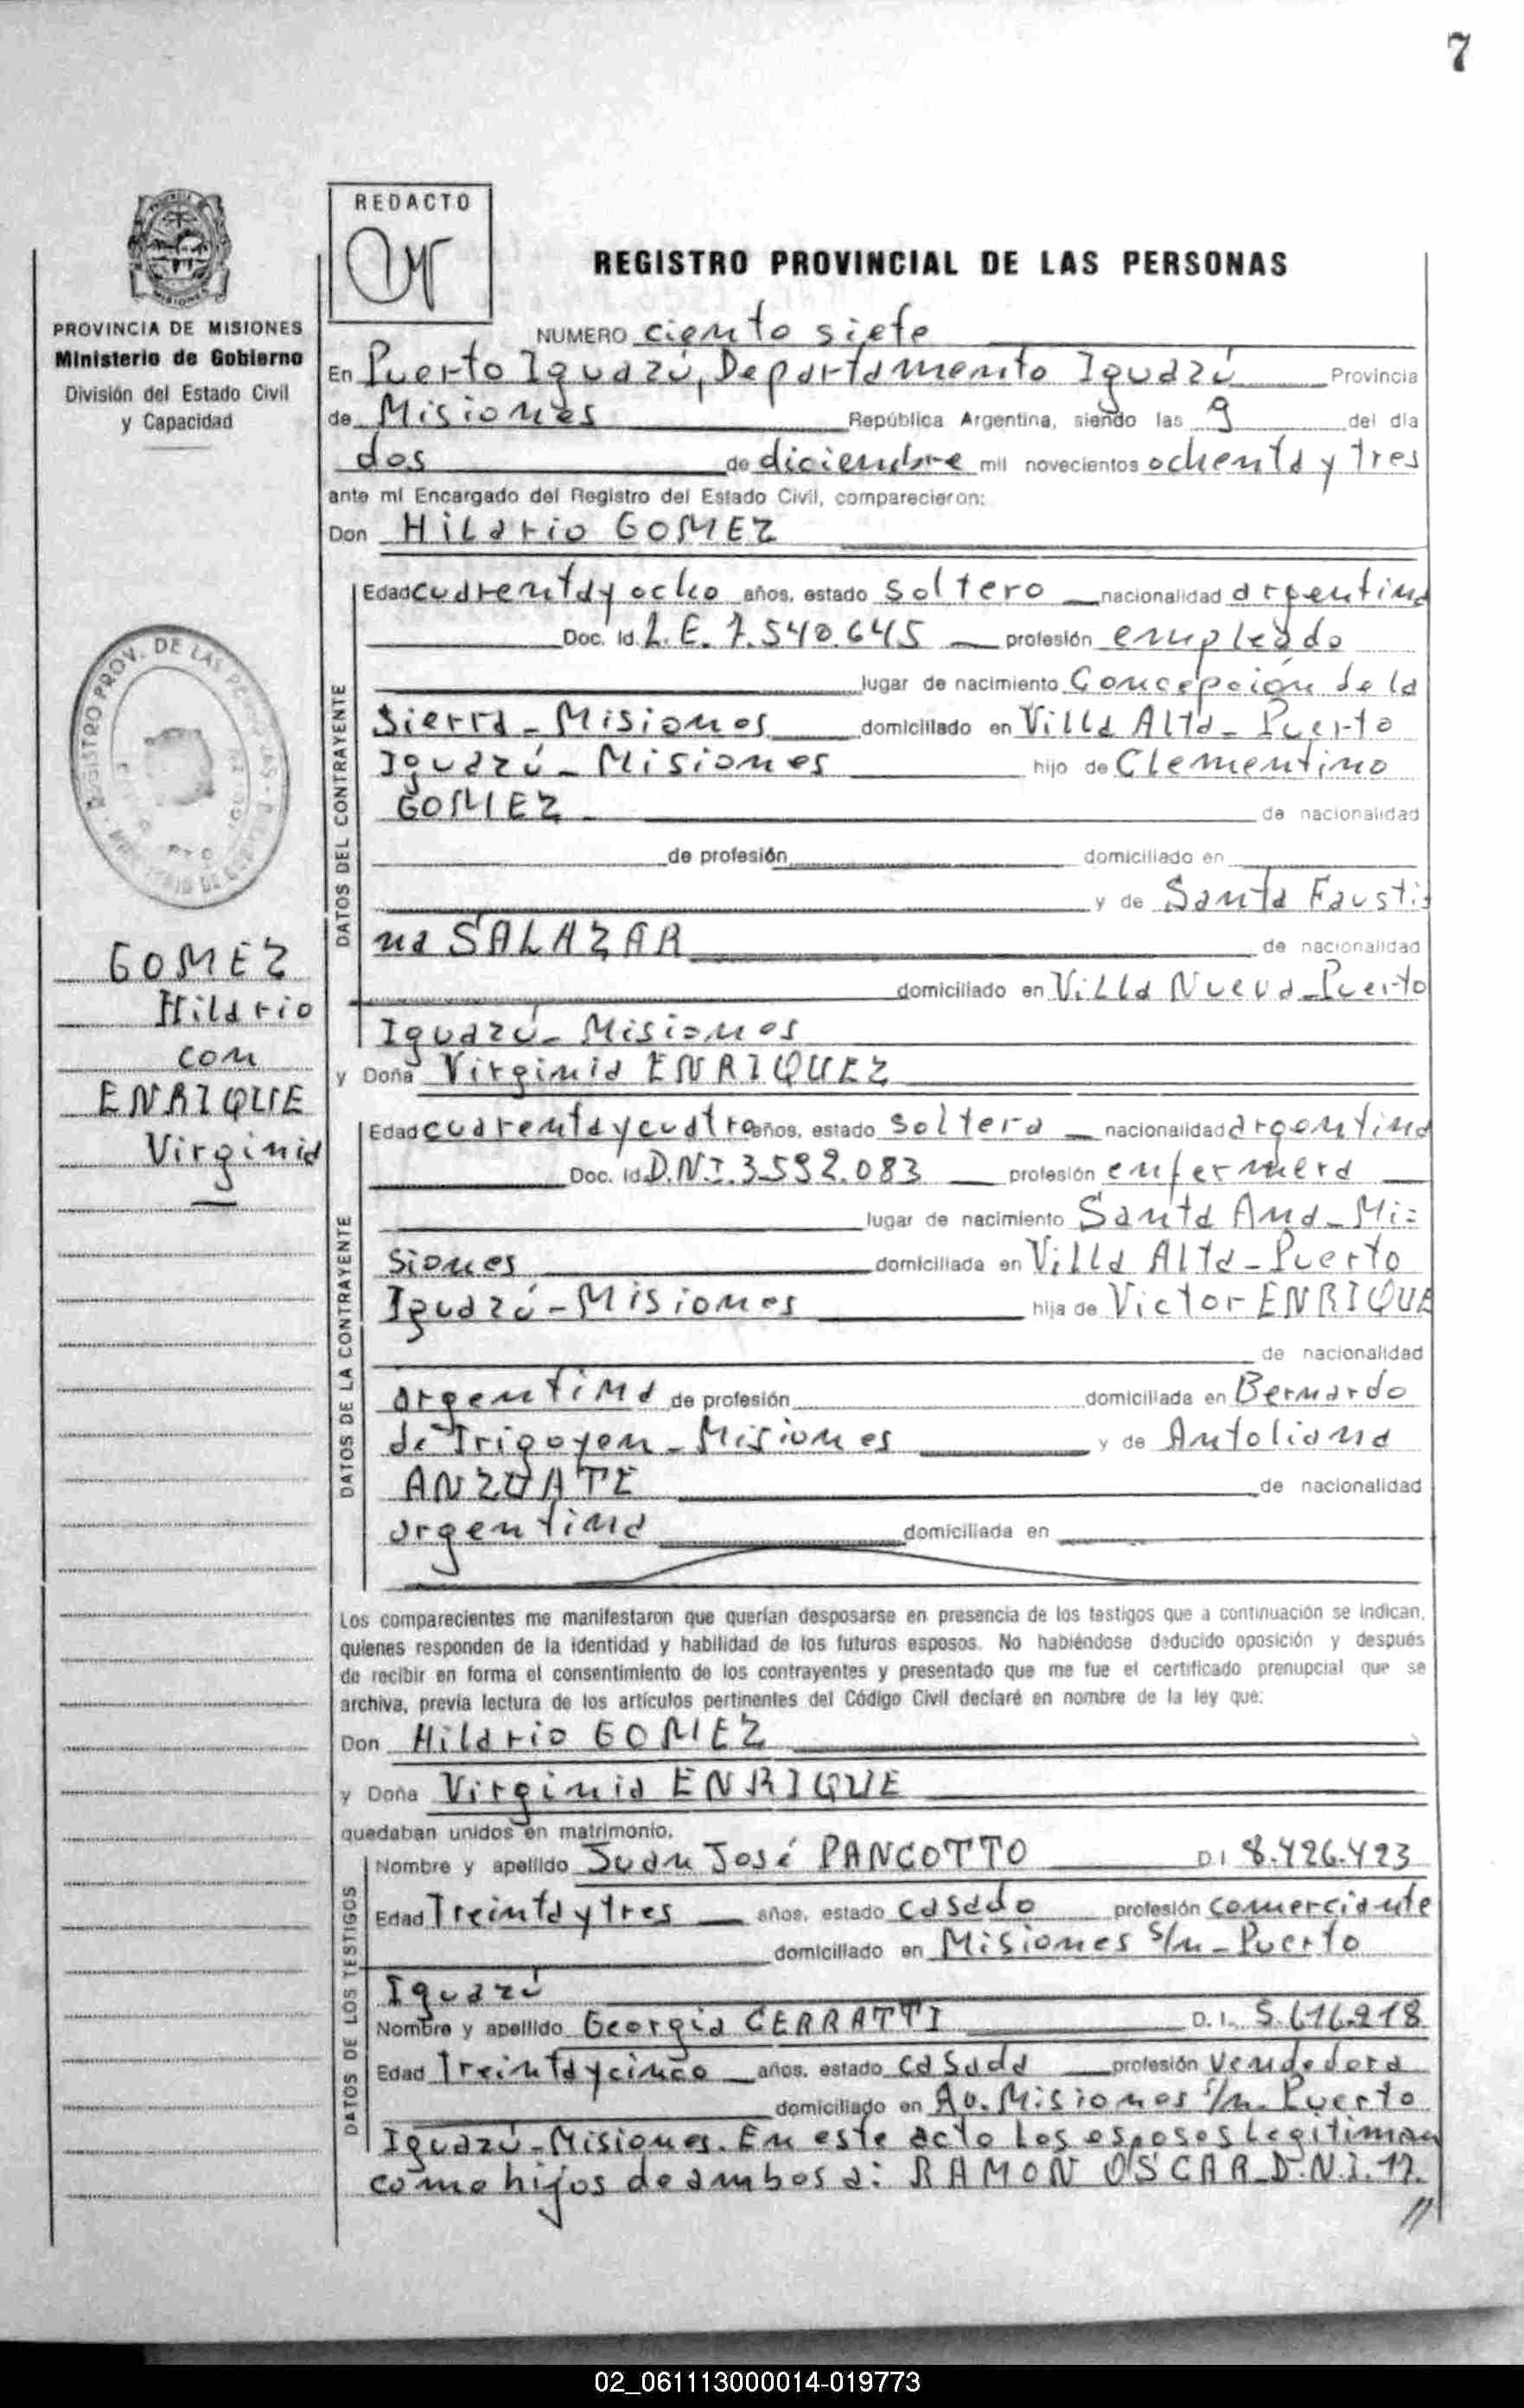 7
REDACTO
REGISTRO PROVINCIAL DE LAS PERSONAS
PROVINCIA DE MISIONES
Ministerio de Gobierno
División del Estado Civil
y Capacidad
NUMERO ciento siete
En Puerto Iguazú, Departamento Iguazú Provincia
de Misiones República Argentina, siendo las 9 del día
dos de diciembre mil novecientos ochenta y tres
ante mí Encargado del Registro del Estado Civil, comparecieron:
Don Hilario GOMEZ
DATOS DEL CONTRAYENTE
Edad cuarenta y ocho años, estado soltero nacionalidad argentina
Doc. Id. L.E. 7.540.645 profesión empleado
lugar de nacimiento Concepción de la
Sierra - Misiones domiciliado en Villa Alta - Puerto
Iguazú - Misiones hijo de Clementino
GOMEZ de nacionalidad
de profesión domiciliado en
y de Santa Fausti=
na SALAZAR de nacionalidad
domiciliado en Villa Nueva - Puerto
Iguazú - Misiones
GOMEZ
Hilario
con
ENRIQUE
Virginia
y Doña Virginia ENRIQUEZ
DATOS DE LA CONTRAYENTE
Edad cuarenta y cuatro años, estado soltera nacionalidad argentina
Doc. Id. D.N.I. 3.592.083 profesión enfermera
lugar de nacimiento Santa Ana - Mi=
siones domiciliada en Villa Alta - Puerto
Iguazú - Misiones hija de Victor ENRIQUE
de nacionalidad
argentina de profesión domiciliada en Bernardo
de Irigoyen - Misiones y de Antoliana
ANZUATE de nacionalidad
argentina domiciliada en
Los comparecientes me manifestaron que querían desposarse en presencia de los testigos que a continuación se indican,
quienes responden de la identidad y habilidad de los futuros esposos. No habiéndose deducido oposición y después
de recibir en forma el consentimiento de los contrayentes y presentado que me fue el certificado prenupcial que se
archiva, previa lectura de los artículos pertinentes del Código Civil declaré en nombre de la ley que:
Don Hilario GOMEZ
y Doña Virginia ENRIQUE
quedaban unidos en matrimonio.
DATOS DE LOS TESTIGOS
Nombre y apellido Juan José PANCOTTO D I 8.426.423
Edad Treinta y tres años, estado casado profesión comerciante
domiciliado en Misiones s/n - Puerto
Iguazú
Nombre y apellido Georgia CERRATTI D. I. 5.616.218
Edad Treinta y cinco años, estado casada profesión vendedora
domiciliado en Av. Misiones s/n - Puerto
Iguazú - Misiones. En este acto los esposos legitiman
como hijos de ambos a: RAMON OSCAR D.N.I. 17.
//
02_061113000014-019773